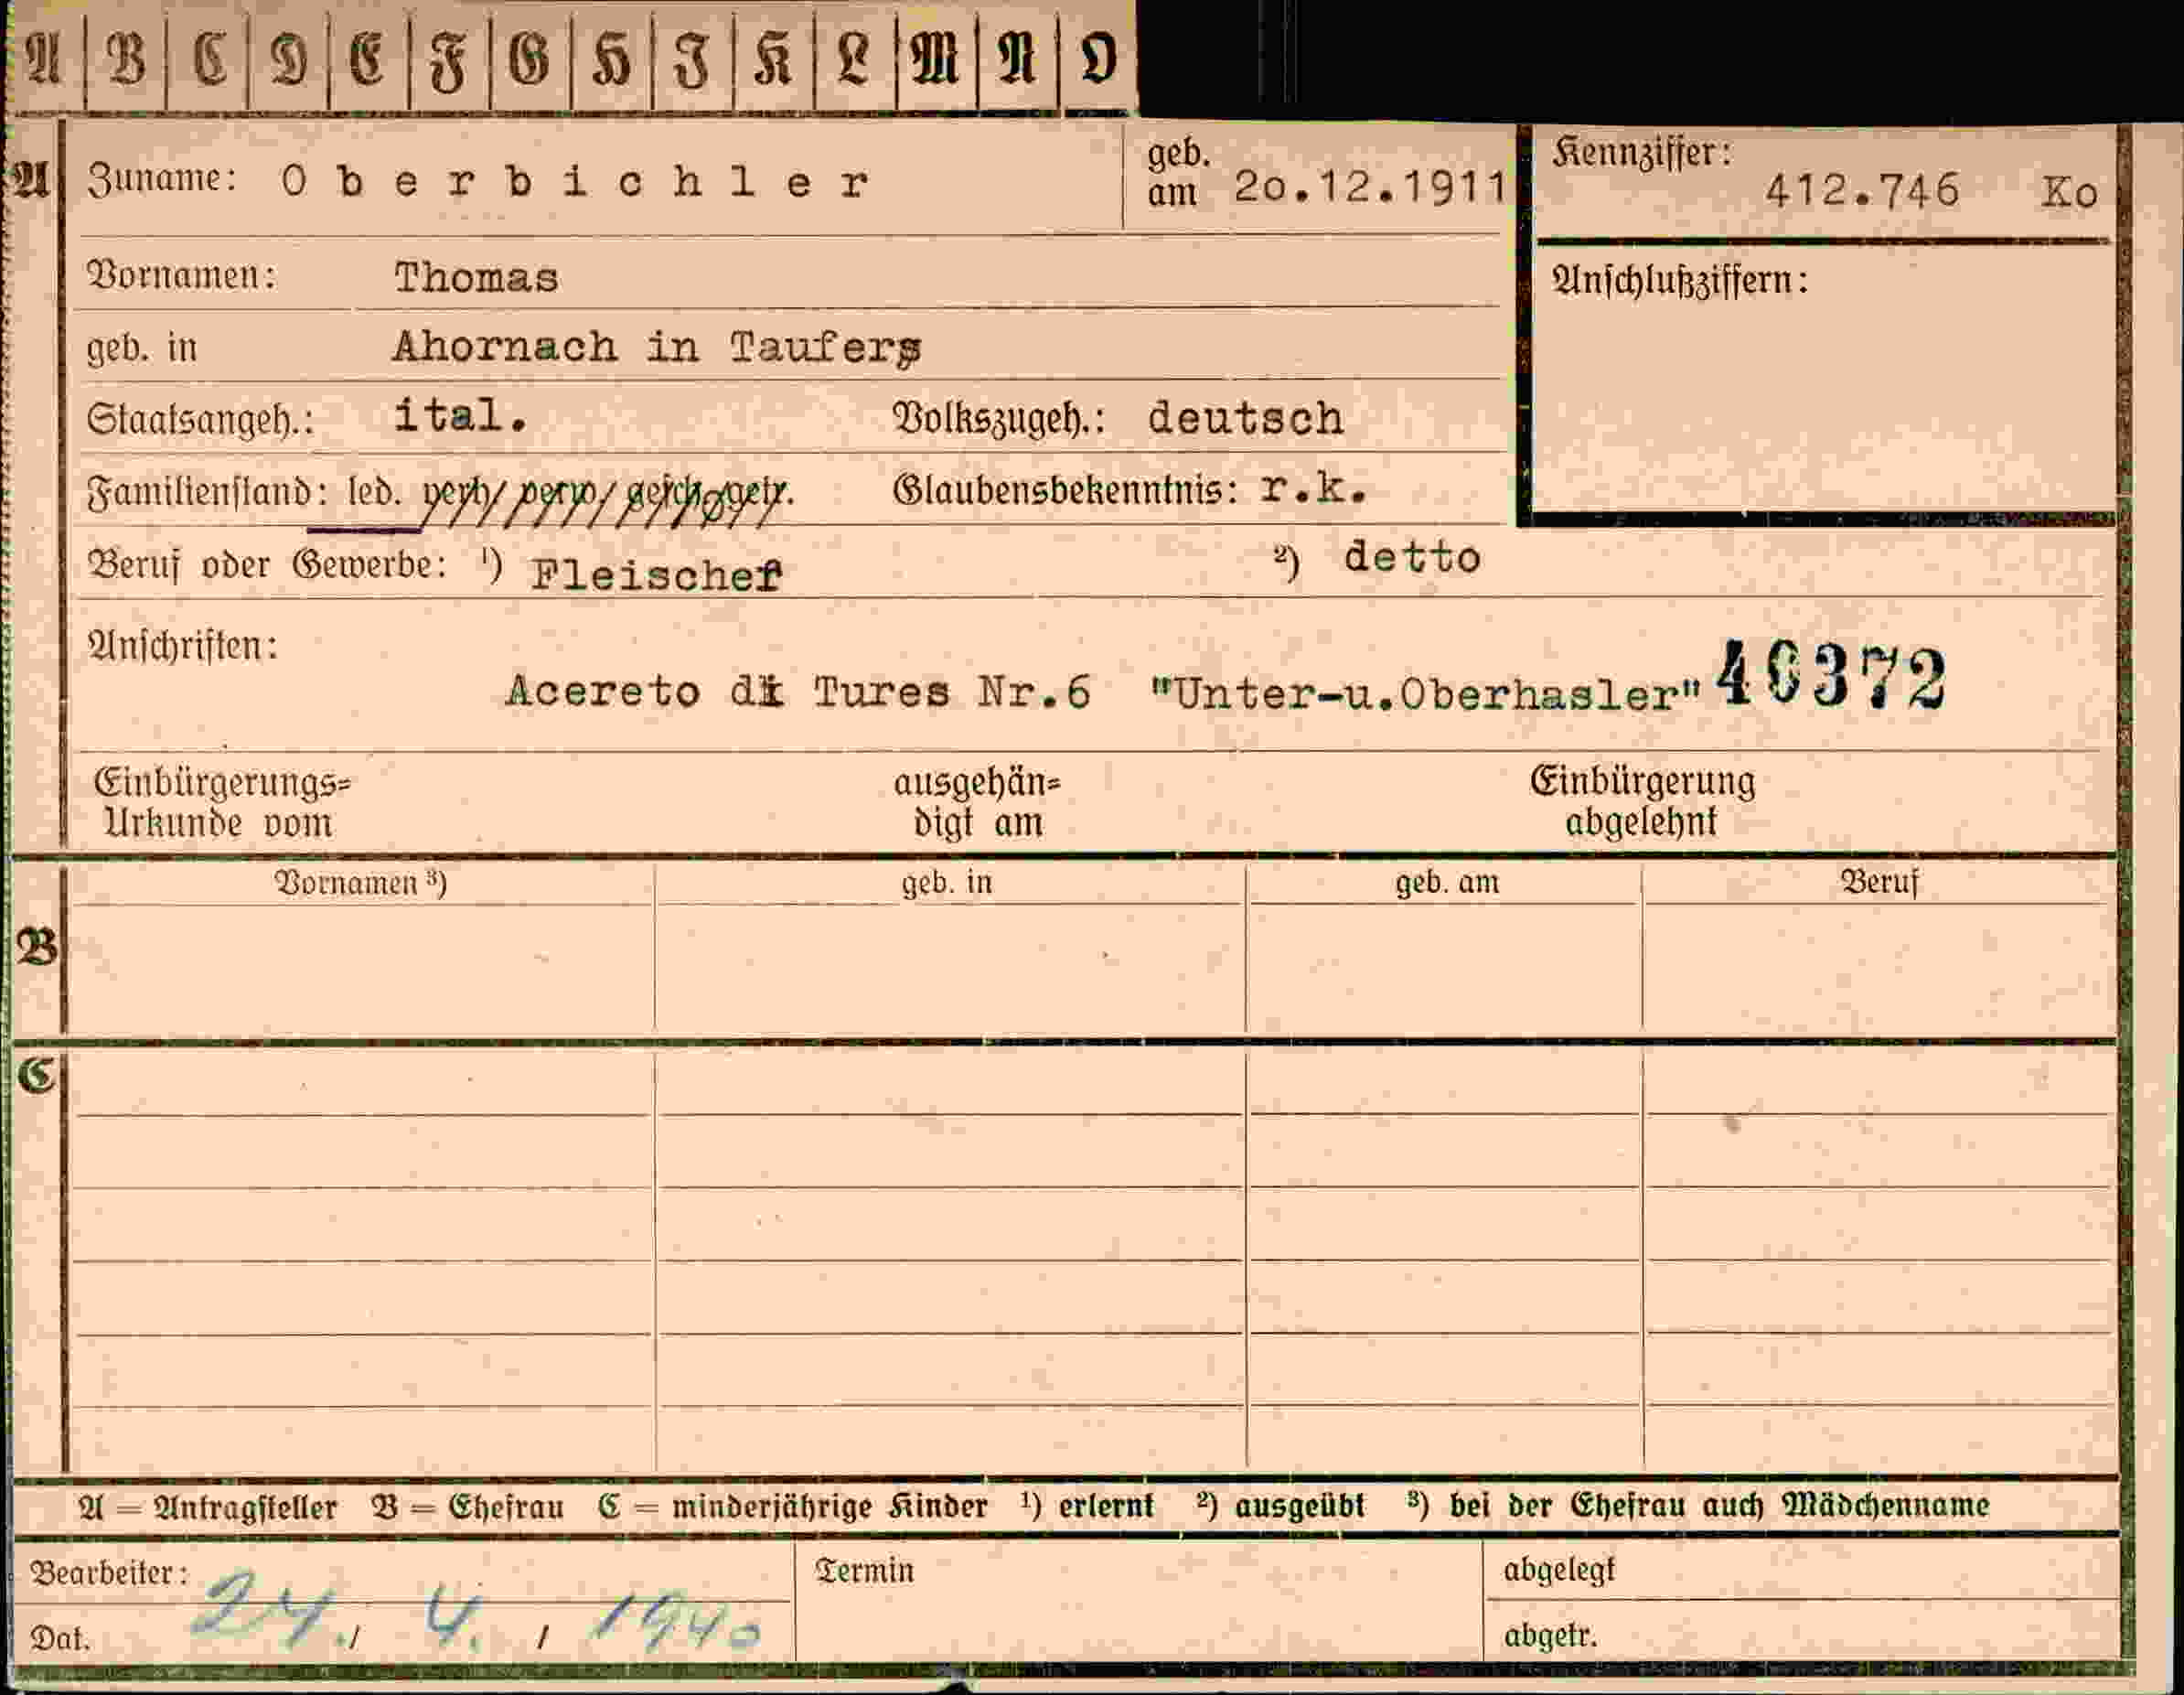 A B C D E F G H I K L M N O
A Zuname: Oberbichler geb. am 20.12.1911 Kennziffer: 412.746 Ko
Vornamen: Thomas Anschlußziffern:
geb. in Ahornach in Taufers
Staatsangeh.: ital. Volkszugeh.: deutsch
Familienstand: led. verh. verw. gesch. getr. Glaubensbekenntnis: r.k.
Beruf oder Gewerbe: ¹) Fleischer ²) detto
Anschriften:
Acereto di Tures Nr.6 "Unter-u.Oberhasler" 40372
Einbürgerungs= ausgehän= Einbürgerung
Urkunde vom digt am abgelehnt
Vornamen ³) geb. in geb. am Beruf
B
C
A = Antragsteller B = Ehefrau C = minderjährige Kinder ¹) erlernt ²) ausgeübt ³) bei der Ehefrau auch Mädchenname
Bearbeiter: Termin abgelegt
Dat. 24./ 4. / 1940 abgetr.